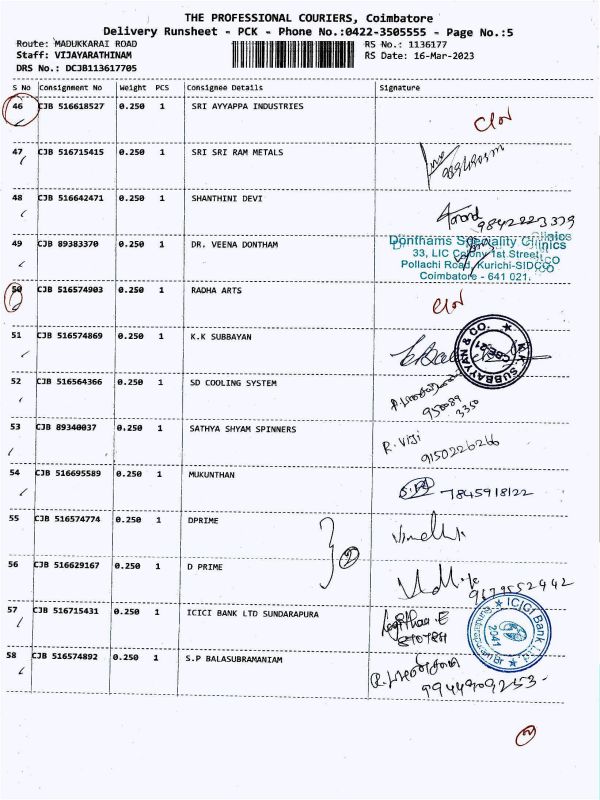 THE PROFESSIONAL COURIERS, Coimbatore
Delivery Runsheet - PCK - Phone No.:0422-3505555 - Page No.:5
Route: MADUKKARAI ROAD RS No.: 1136177
Staff: VIJAYARATHINAM RS Date: 16-Mar-2023
DRS No.: DCJB113617705
S No Consignment No Weight PCS Consignee Details Signature
46 CJB 516618527 0.250 1 SRI AYYAPPA INDUSTRIES
47 CJB 516715415 0.250 1 SRI SRI RAM METALS
48 CJB 516642471 0.250 1 SHANTHINI DEVI
Anand 9842223379
49 CJB 89383370 0.250 1 DR. VEENA DONTHAM
Donthams Speciality Clinics
33, LIC Colony 1st Street,
Pollachi Road, Kurichi-SIDCO
Coimbatore - 641 021.
50 CJB 516574903 0.250 1 RADHA ARTS
51 CJB 516574869 0.250 1 K.K SUBBAYAN
K.K. SUBBAYYAN & CO.
52 CJB 516564366 0.250 1 SD COOLING SYSTEM
53 CJB 89340037 0.250 1 SATHYA SHYAM SPINNERS
R. Viji
9150226266
54 CJB 516695589 0.250 1 MUKUNTHAN
7845918122
55 CJB 516574774 0.250 1 DPRIME
2
56 CJB 516629167 0.250 1 D PRIME
9677552942
57 CJB 516715431 0.250 1 ICICI BANK LTD SUNDARAPURA
ICICI Bank
2041
58 CJB 516574892 0.250 1 S.P BALASUBRAMANIAM
9944909253
2